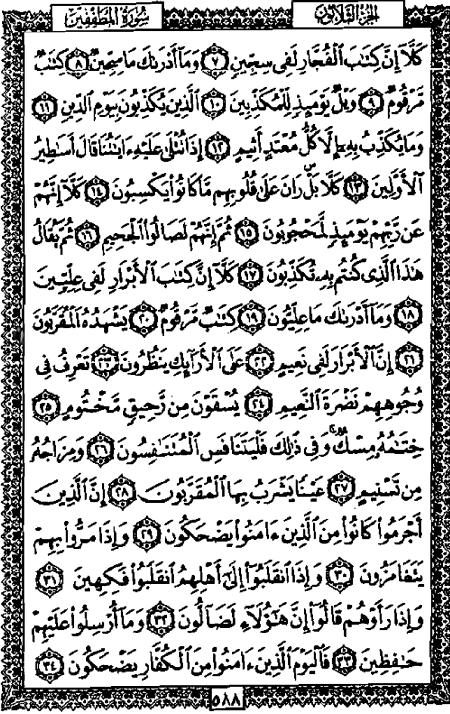 سُورَةُ المُطَفِّفِينَ الجُزْءُ الثَّلَاثُونَ
كَلَّآ إِنَّ كِتَٰبَ ٱلْفُجَّارِ لَفِى سِجِّينٍ ﴿٧﴾ وَمَآ أَدْرَىٰكَ مَا سِجِّينٌ ﴿٨﴾ كِتَٰبٌ
مَّرْقُومٌ ﴿٩﴾ وَيْلٌ يَوْمَئِذٍ لِّلْمُكَذِّبِينَ ﴿١٠﴾ ٱلَّذِينَ يُكَذِّبُونَ بِيَوْمِ ٱلدِّينِ ﴿١١﴾
وَمَا يُكَذِّبُ بِهِۦٓ إِلَّا كُلُّ مُعْتَدٍ أَثِيمٍ ﴿١٢﴾ إِذَا تُتْلَىٰ عَلَيْهِ ءَايَٰتُنَا قَالَ أَسَٰطِيرُ
ٱلْأَوَّلِينَ ﴿١٣﴾ كَلَّا بَلْ رَانَ عَلَىٰ قُلُوبِهِم مَّا كَانُوا۟ يَكْسِبُونَ ﴿١٤﴾ كَلَّآ إِنَّهُمْ
عَن رَّبِّهِمْ يَوْمَئِذٍ لَّمَحْجُوبُونَ ﴿١٥﴾ ثُمَّ إِنَّهُمْ لَصَالُوا۟ ٱلْجَحِيمِ ﴿١٦﴾ ثُمَّ يُقَالُ
هَٰذَا ٱلَّذِى كُنتُم بِهِۦ تُكَذِّبُونَ ﴿١٧﴾ كَلَّآ إِنَّ كِتَٰبَ ٱلْأَبْرَارِ لَفِى عِلِّيِّينَ
﴿١٨﴾ وَمَآ أَدْرَىٰكَ مَا عِلِّيُّونَ ﴿١٩﴾ كِتَٰبٌ مَّرْقُومٌ ﴿٢٠﴾ يَشْهَدُهُ ٱلْمُقَرَّبُونَ
﴿٢١﴾ إِنَّ ٱلْأَبْرَارَ لَفِى نَعِيمٍ ﴿٢٢﴾ عَلَى ٱلْأَرَآئِكِ يَنظُرُونَ ﴿٢٣﴾ تَعْرِفُ فِى
وُجُوهِهِمْ نَضْرَةَ ٱلنَّعِيمِ ﴿٢٤﴾ يُسْقَوْنَ مِن رَّحِيقٍ مَّخْتُومٍ ﴿٢٥﴾
خِتَٰمُهُۥ مِسْكٌ وَفِى ذَٰلِكَ فَلْيَتَنَافَسِ ٱلْمُتَنَٰفِسُونَ ﴿٢٦﴾ وَمِزَاجُهُۥ
مِن تَسْنِيمٍ ﴿٢٧﴾ عَيْنًا يَشْرَبُ بِهَا ٱلْمُقَرَّبُونَ ﴿٢٨﴾ إِنَّ ٱلَّذِينَ
أَجْرَمُوا۟ كَانُوا۟ مِنَ ٱلَّذِينَ ءَامَنُوا۟ يَضْحَكُونَ ﴿٢٩﴾ وَإِذَا مَرُّوا۟ بِهِمْ
يَتَغَامَزُونَ ﴿٣٠﴾ وَإِذَا ٱنقَلَبُوٓا۟ إِلَىٰٓ أَهْلِهِمُ ٱنقَلَبُوا۟ فَكِهِينَ ﴿٣١﴾
وَإِذَا رَأَوْهُمْ قَالُوٓا۟ إِنَّ هَٰٓؤُلَآءِ لَضَآلُّونَ ﴿٣٢﴾ وَمَآ أُرْسِلُوا۟ عَلَيْهِمْ
حَٰفِظِينَ ﴿٣٣﴾ فَٱلْيَوْمَ ٱلَّذِينَ ءَامَنُوا۟ مِنَ ٱلْكُفَّارِ يَضْحَكُونَ ﴿٣٤﴾
٥٨٨